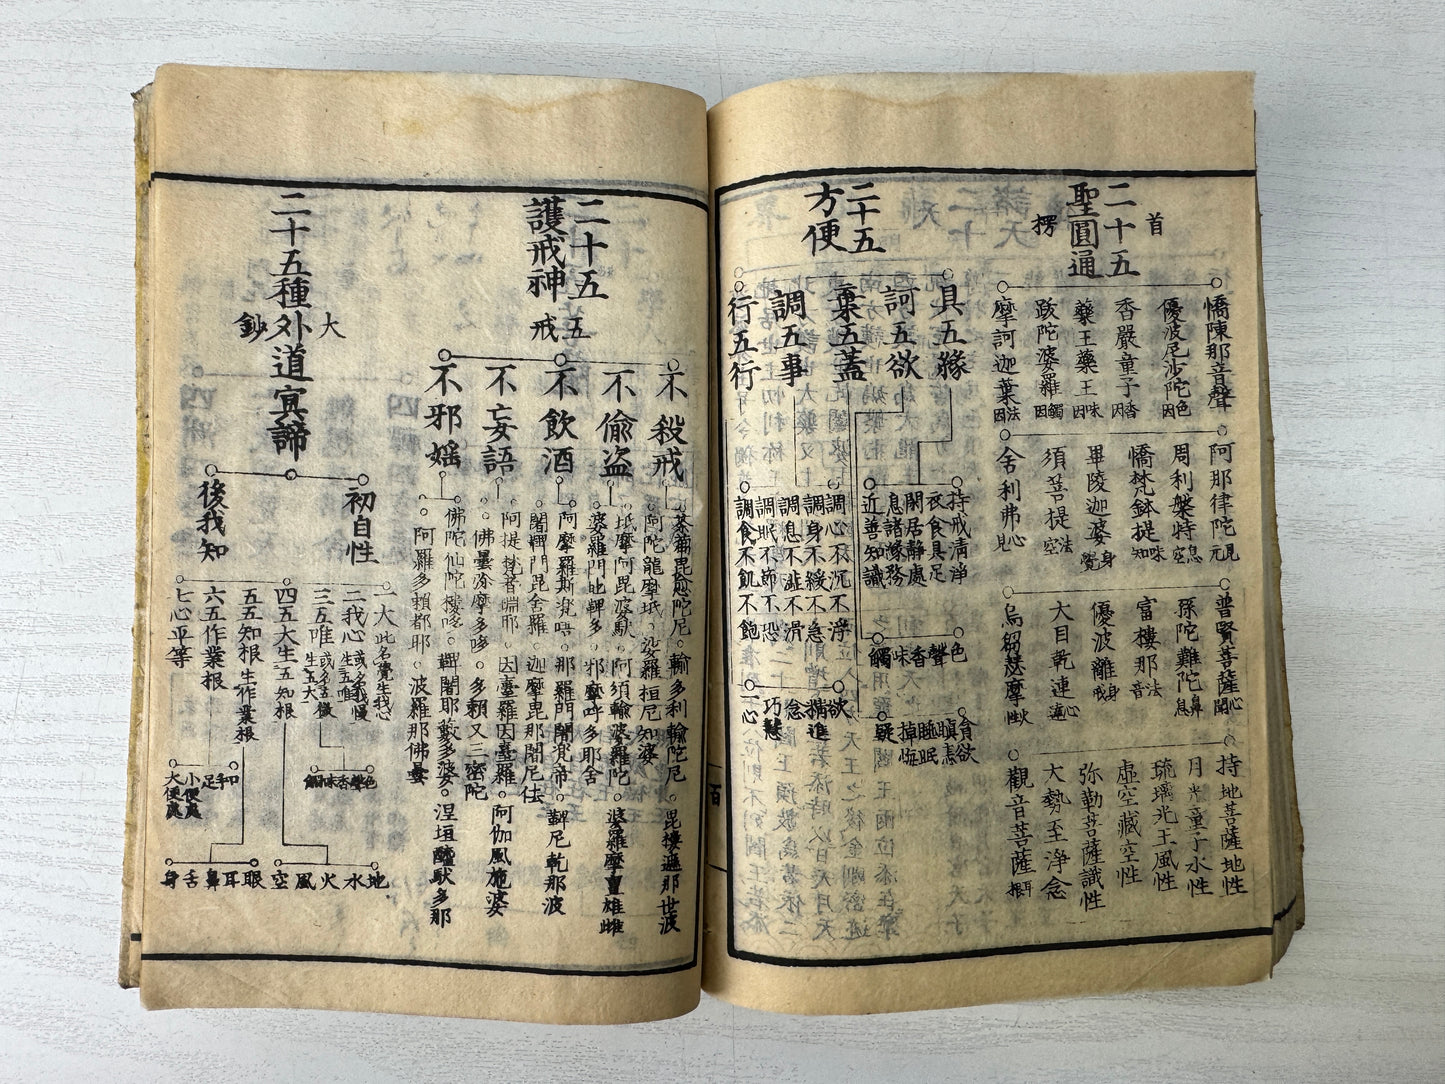 二十五
聖圓通
首
楞
憍陳那音聲
優波尼沙陀色因
香嚴童子香因
藥王藥王味因
跋陀婆羅觸因
摩訶迦葉法因
阿那律陀見元
周利槃特息空
憍梵鉢提味知
畢陵迦婆身覺
須菩提法空
舍利弗心見
普賢菩薩心聞
孫陀難陀鼻息
富樓那法音
優波離身戒
大目乾連心遍
烏芻瑟摩火性
持地菩薩地性
月光童子水性
琉璃光王風性
虛空藏空性
彌勒菩薩識性
大勢至淨念
觀音菩薩耳根
二十五
方便
具五緣
訶五欲
棄五蓋
調五事
行五行
持戒清淨
衣食具足
閑居靜處
息諸緣務
近善知識
色
聲
香
味
觸
貪欲
瞋恚
睡眠
掉悔
疑
調心不沉不浮
調身不緩不急
調息不澁不滑
調眠不節不恣
調食不飢不飽
欲
精進
念
巧慧
一心
百
二十五
護戒神
五
戒
不殺戒
不偷盗
不飲酒
不妄語
不邪婬
茶蒭毘愈陀尼。輸多利輸陀尼。毘樓遮那世波
阿陀龍摩坻。婆羅桓尼和婆
坻摩阿毘婆馱。阿須輸婆羅陀。婆羅摩亶雄雌
婆羅門地鞞多。那摩吁多耶舍
阿摩羅斯兜嘻。那羅門闍兜帝。鞞尼乾那波
闍鞞門毘舍羅。迦摩毘那闍尼佉
阿提梵者珊耶。因臺羅因臺羅。阿伽風施婆
佛曇彌摩多哆。多賴叉三密陀
佛陀仙陀樓哆。鞞闍耶藪多婆。涅坭醯馱多那
阿羅多賴都耶。波羅那佛曇
二十五種外道冥諦
大
鈔
初自性
後我知
一大此名覺生我心
二我心或名我慢生五唯
三五唯或名五微生五大
四五大生五知根
五五知根生作業根
六五作業根
七心平等
色
聲
香
味
觸
地
水
火
風
空
眼
耳
鼻
舌
身
手
足
小便處
大便處